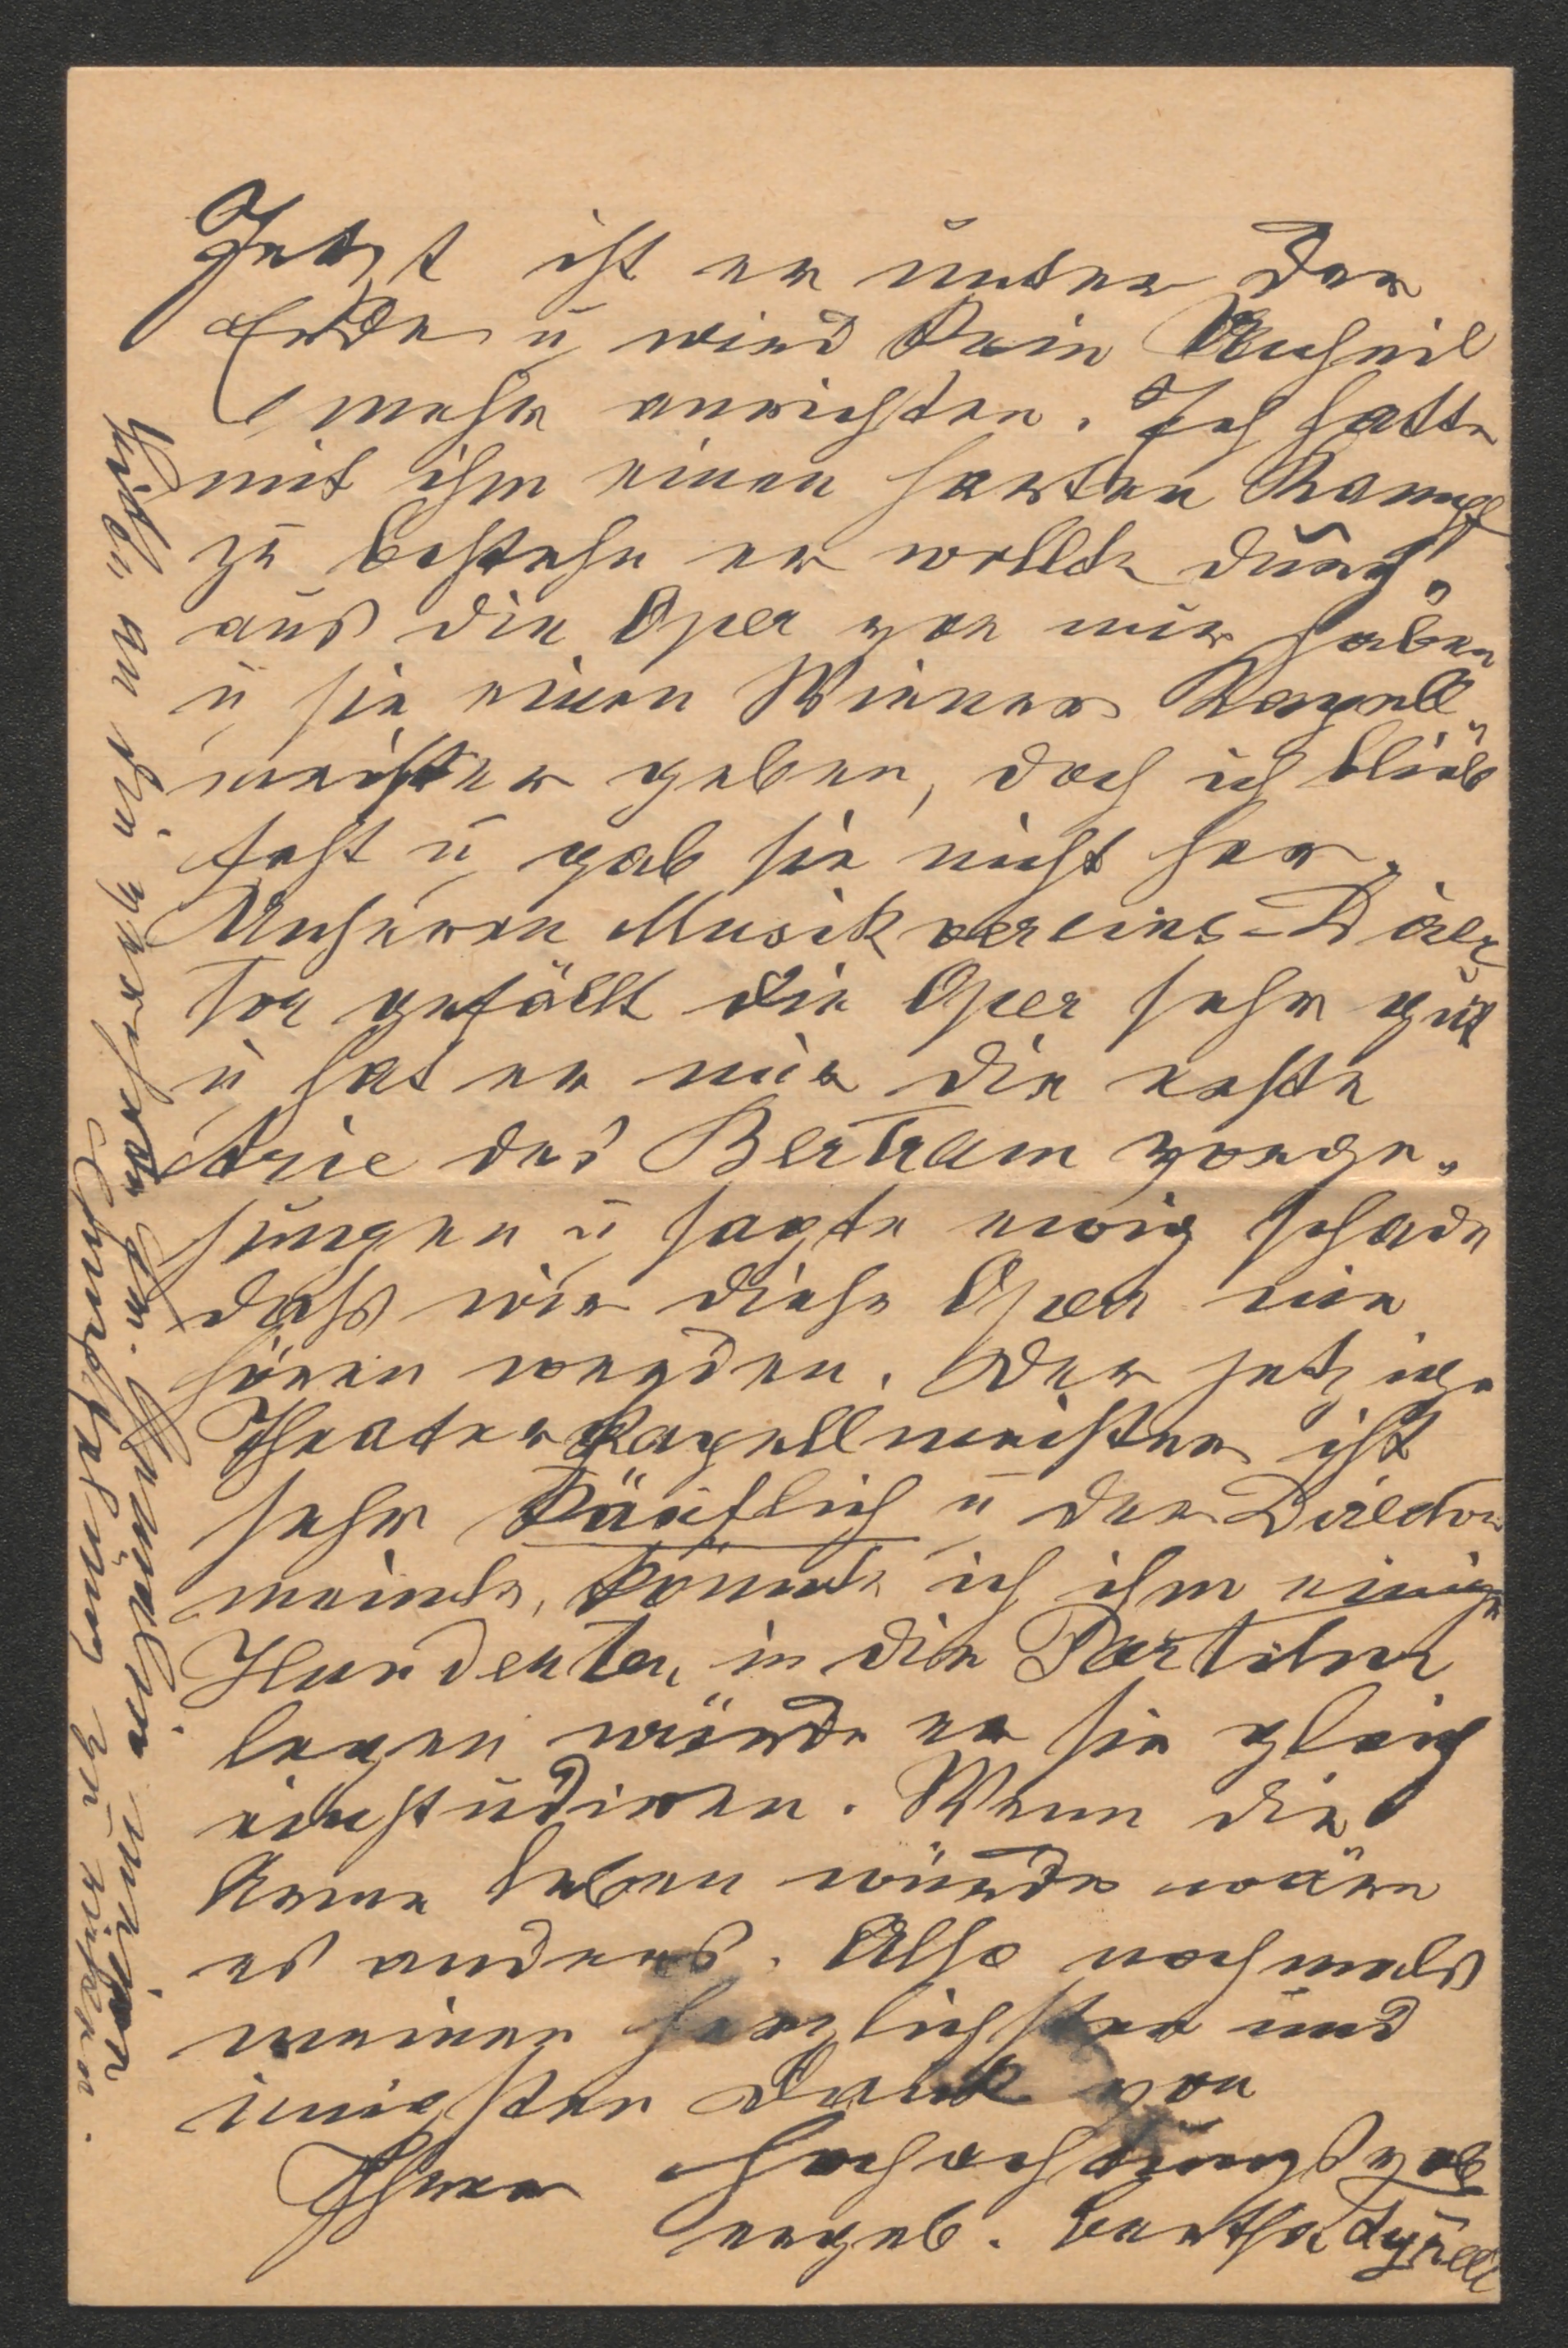 Jetzt ist er unter der
Erde u wird kein Unheil
mehr anrichten. Ich hatte
mit ihm einen harten Kampf
zu bestehn er wollte durch„
aus die Oper von mir haben
u sie einen Wiener Kapell„
meister geben, doch ich blieb
fest u gab sie nicht her.
Unseren Musikvereins-Direk
tor gefällt die Oper sehr gut
u hat er mir die erste
Arie des Bertram vorge„
sungen u sagte ewig schade
dass wir diese Oper nie
hören werden. Der jetzige
Theaterkapellmeister ist
sehr käuflich u der Direktor
meinte, könnte ich ihm einige
Hunderter in die Partitur
legen würde er sie gleich
einstudiren. Wenn die
Arme leben würde wäre
es anders. Also nochmals
meinen herzlichsten und
innigsten Dank von
Ihrer Hochachtungsvoll
ergeb. Bertha
an die